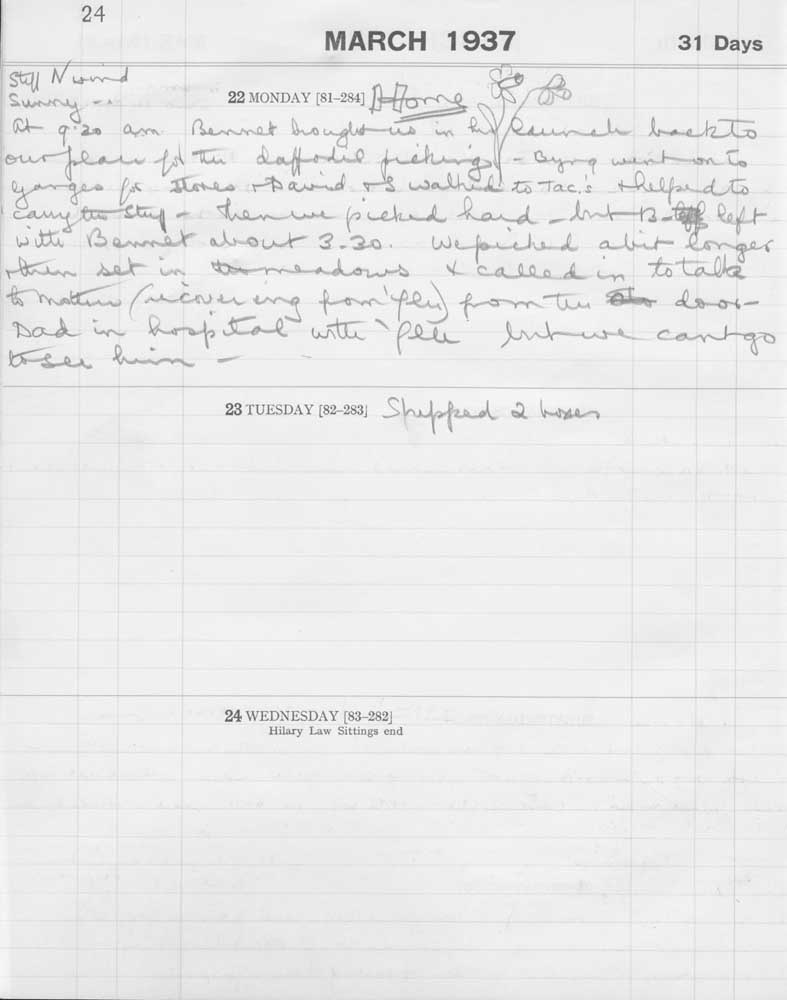 24
MARCH 1937 31 Days
Still N wind
Sunny -
22 MONDAY [81–284] Home
At 9.20 am Bennet brought us in his launch back to
our place for the daffodil picking - Byng went on to
Ganges for stores & David & I walked to Tac.'s & helped to
carry the stuff - then we picked hard - but B- left
with Bennet about 3.30. We picked a bit longer
& then set in meadows & called in to talk
to mother (recovering from 'flu) from the door -
Dad in hospital with 'flu but we cant go
to see him -
23 TUESDAY [82–283] Shipped 2 boxes
24 WEDNESDAY [83–282]
Hilary Law Sittings end